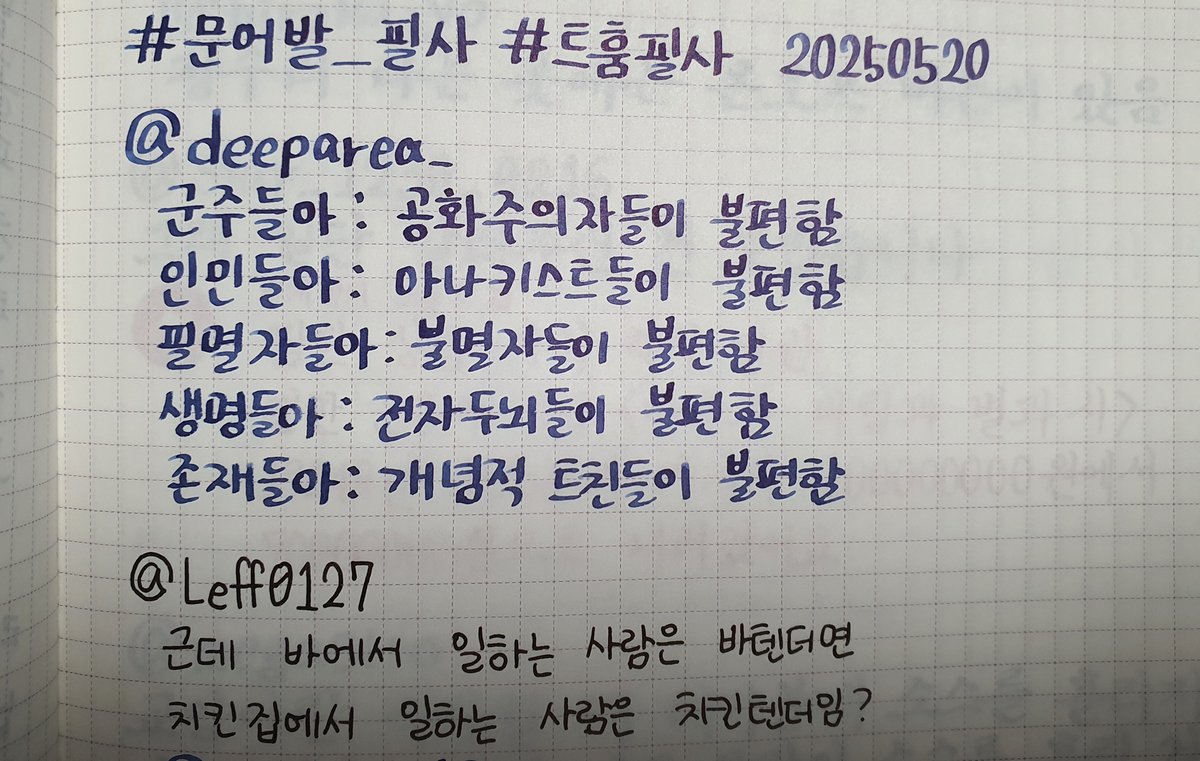 #문어발_필사 #트훔필사 20250520
@deeparea_
군주들아: 공화주의자들이 불편함
인민들아: 아나키스트들이 불편함
필멸자들아: 불멸자들이 불편함
생명들아: 전자두뇌들이 불편함
존재들아: 개념적 트친들이 불편함
@Leff0127
근데 바에서 일하는 사람은 바텐더면
치킨집에서 일하는 사람은 치킨텐더임?